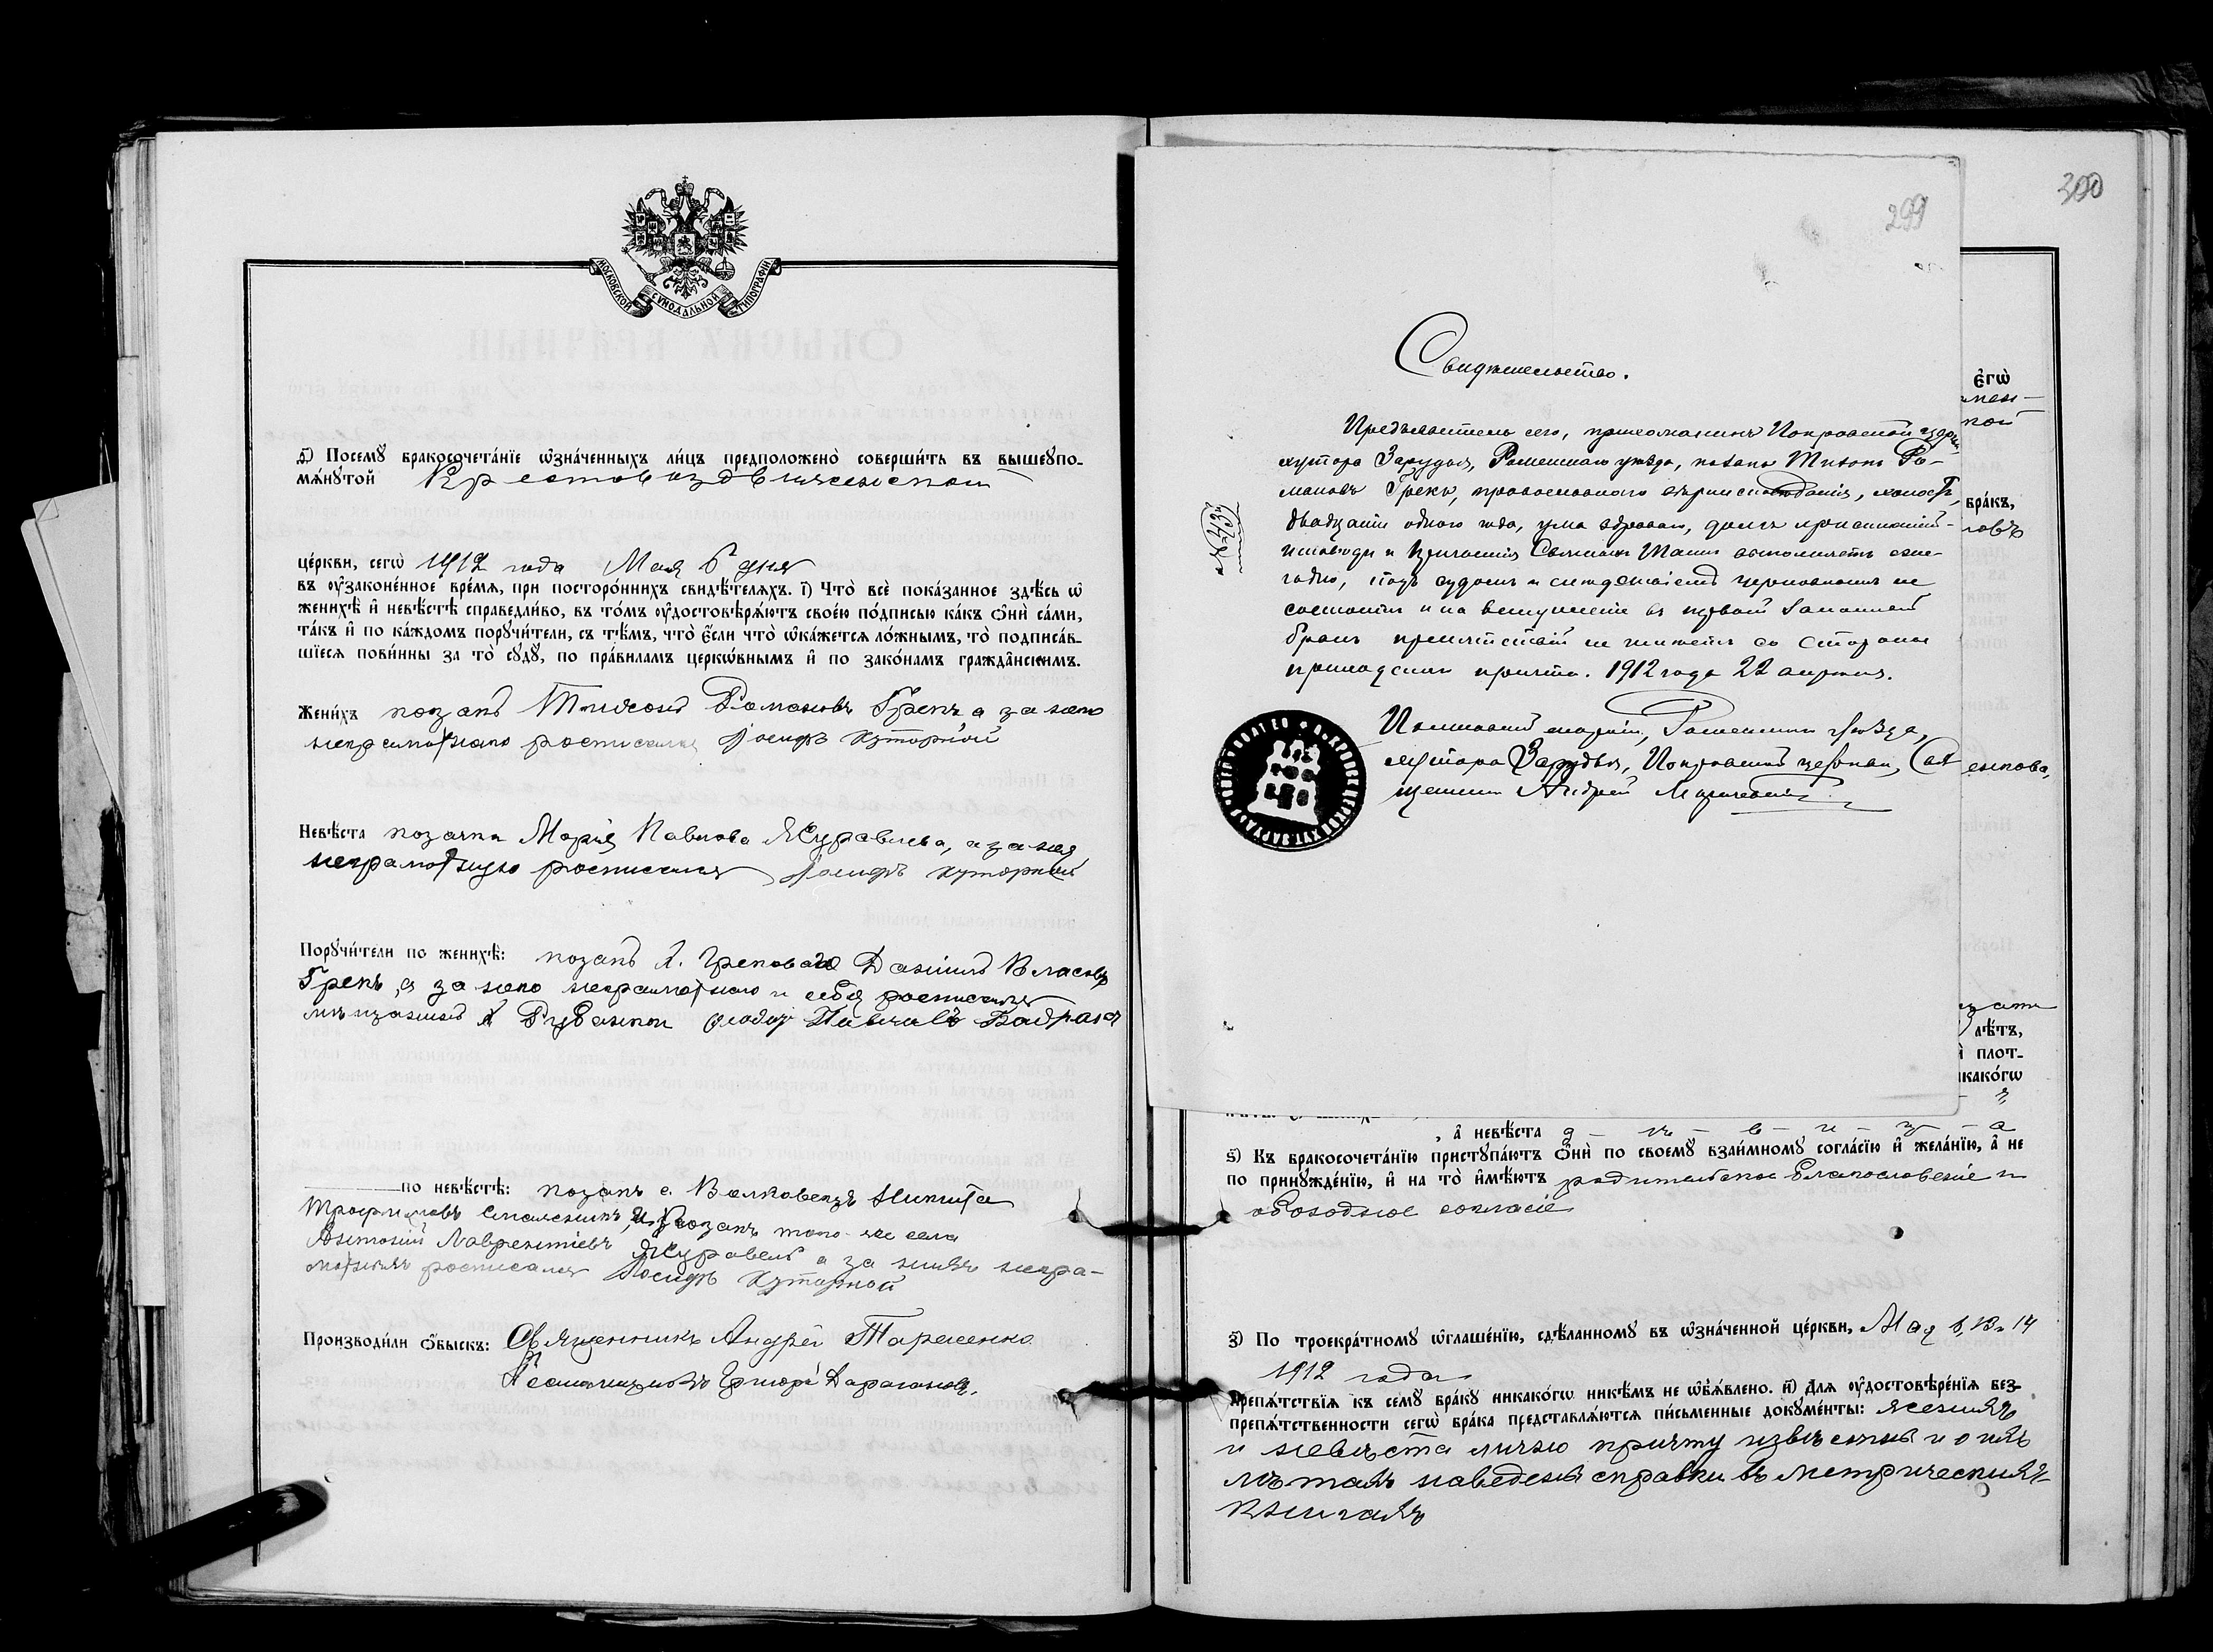 МОСКОВСКОЙ СѴНОДАЛЬНОЙ ТИПОГРАФІИ
д҃) Посемꙋ бракосочета́нїе ѡ҆зна́ченныхъ ли́цъ предположено̀ соверши́ть въ вышеꙋпо-
мѧ́нꙋтой Крестовоздвиженской
це́ркви, сегѡ̀ 1912 года Мая 6 дня
въ ᲂу҆зако́ненное вре́мѧ, при посторо́ннихъ свидѣ́телѧхъ. і҃) Что̀ всѐ пока́занное здѣ́сь ѡ҆
женихѣ̀ и҆ невѣ́стѣ справедли́во, въ то́мъ ᲂу҆достовѣрѧ́ютъ свое́ю по́дписью ка́къ ѻ҆нѝ са́ми,
та́къ и҆ по ка́ждомъ порꙋчи́тели, съ тѣ́мъ, что̀ є҆́сли что̀ ѡ҆ка́жетсѧ ло́жнымъ, то̀ подписа́в-
шїесѧ пови́нны за то̀ сꙋдꙋ̀, по пра́виламъ церкѡ́внымъ и҆ по зако́намъ гражда̑нскимъ.
Жени́хъ козакъ Тихонъ Романовъ Грекъ, а за него
неграмотнаго росписался Іосифъ Хуторной
Невѣ́ста козачка Марія Павлова Журавлева, а за нея
неграмотную росписался Іосифъ Хуторной
Порꙋчи́тели по женихѣ̀: козакъ х. Даніилъ Власовъ
Грекъ, а за него неграмотнаго и себя росписался
мѣщанинъ х
по невѣ́стѣ: козакъ с. Волковецъ Никита
Трофимовъ и козакъ того-же села
Антоній Лаврентіевъ Журавель а за нихъ негра-
мотныхъ росписался Іосифъ Хуторной
Производи́ли ѻ҆́быскъ: Священникъ Андрей Тарасенко
Псаломщикъ Григорій
300
299
Свидѣтельство.
Предъявитель сего, прихожанинъ Покровской церкви
хутора Зарудья, Роменскаго уѣзда, козакъ Тихонъ Ро-
мановъ Грекъ, православнаго вѣроисповѣданія, холостъ,
двадцати одного года, ума здраваго, долгъ христіанской
исповѣди и Причастія Святыхъ Таинъ исполняетъ еже-
годно, подъ судомъ и слѣдствіемъ церковнымъ не
состоитъ и на вступленіе въ первый законный
бракъ препятствій не имѣетъ со стороны
приходскаго причта. 1912 года 22 апрѣля.
№ 437
Полтавской епархіи, Роменскаго уѣзда,
хутора Зарудья, Покровской церкви, Свя
щенникъ Андрей
є҆гѡ̀
бра́къ,
лѣ́тъ,
плот-
какогѡ
, а҆ невѣ́ста д — ѣ — в — и — ц — а
ѕ҃) Къ бракосочета́нїю пристꙋпа́ютъ ѻ҆нѝ по своемꙋ̀ взаи́мномꙋ согла́сїю и҆ жела́нїю, а҆ не
по принꙋжде́нїю, и҆ на то̀ и҆мѣ́ютъ родительское благословеніе и
обоюдное согласіе
з҃) По троекра́тномꙋ ѡ҆глаше́нїю, сдѣ́ланномꙋ въ ѡ҆зна́ченной це́ркви, Мая 14
1912 года
препѧ́тствїѧ къ семꙋ̀ бра́кꙋ никако́гѡ никѣ́мъ не ѡ҆б̾ѧ́влено. и҃) Длѧ ᲂу҆достовѣре́нїѧ без-
препѧ́тственности сегѡ̀ бра́ка представлѧ́ютсѧ пи́сьменные докꙋме́нты: женихъ
и невѣста лично причту извѣстны и о ихъ
лѣтахъ наведены справки въ метрическихъ
книгахъ